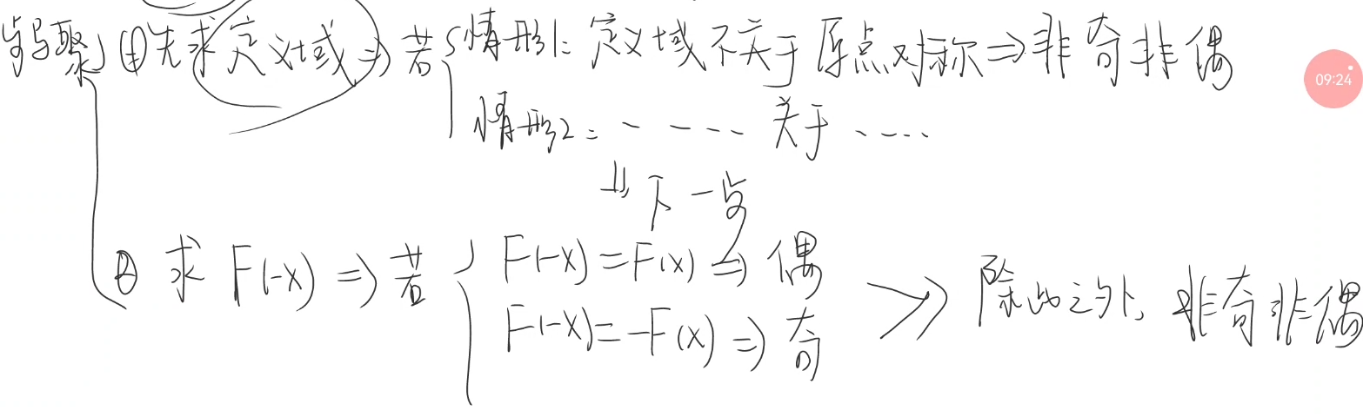 步骤 ①先求定义域 ⇒ 若 情形1: 定义域不关于原点对称 ⇒ 非奇非偶
09:24
情形2: - - - - - 关于 ....
⇓ 下一步
② 求 F(-x) ⇒ 若 F(-x) = F(x) ⇒ 偶
F(-x) = -F(x) ⇒ 奇
⇒ 除此之外, 非奇非偶